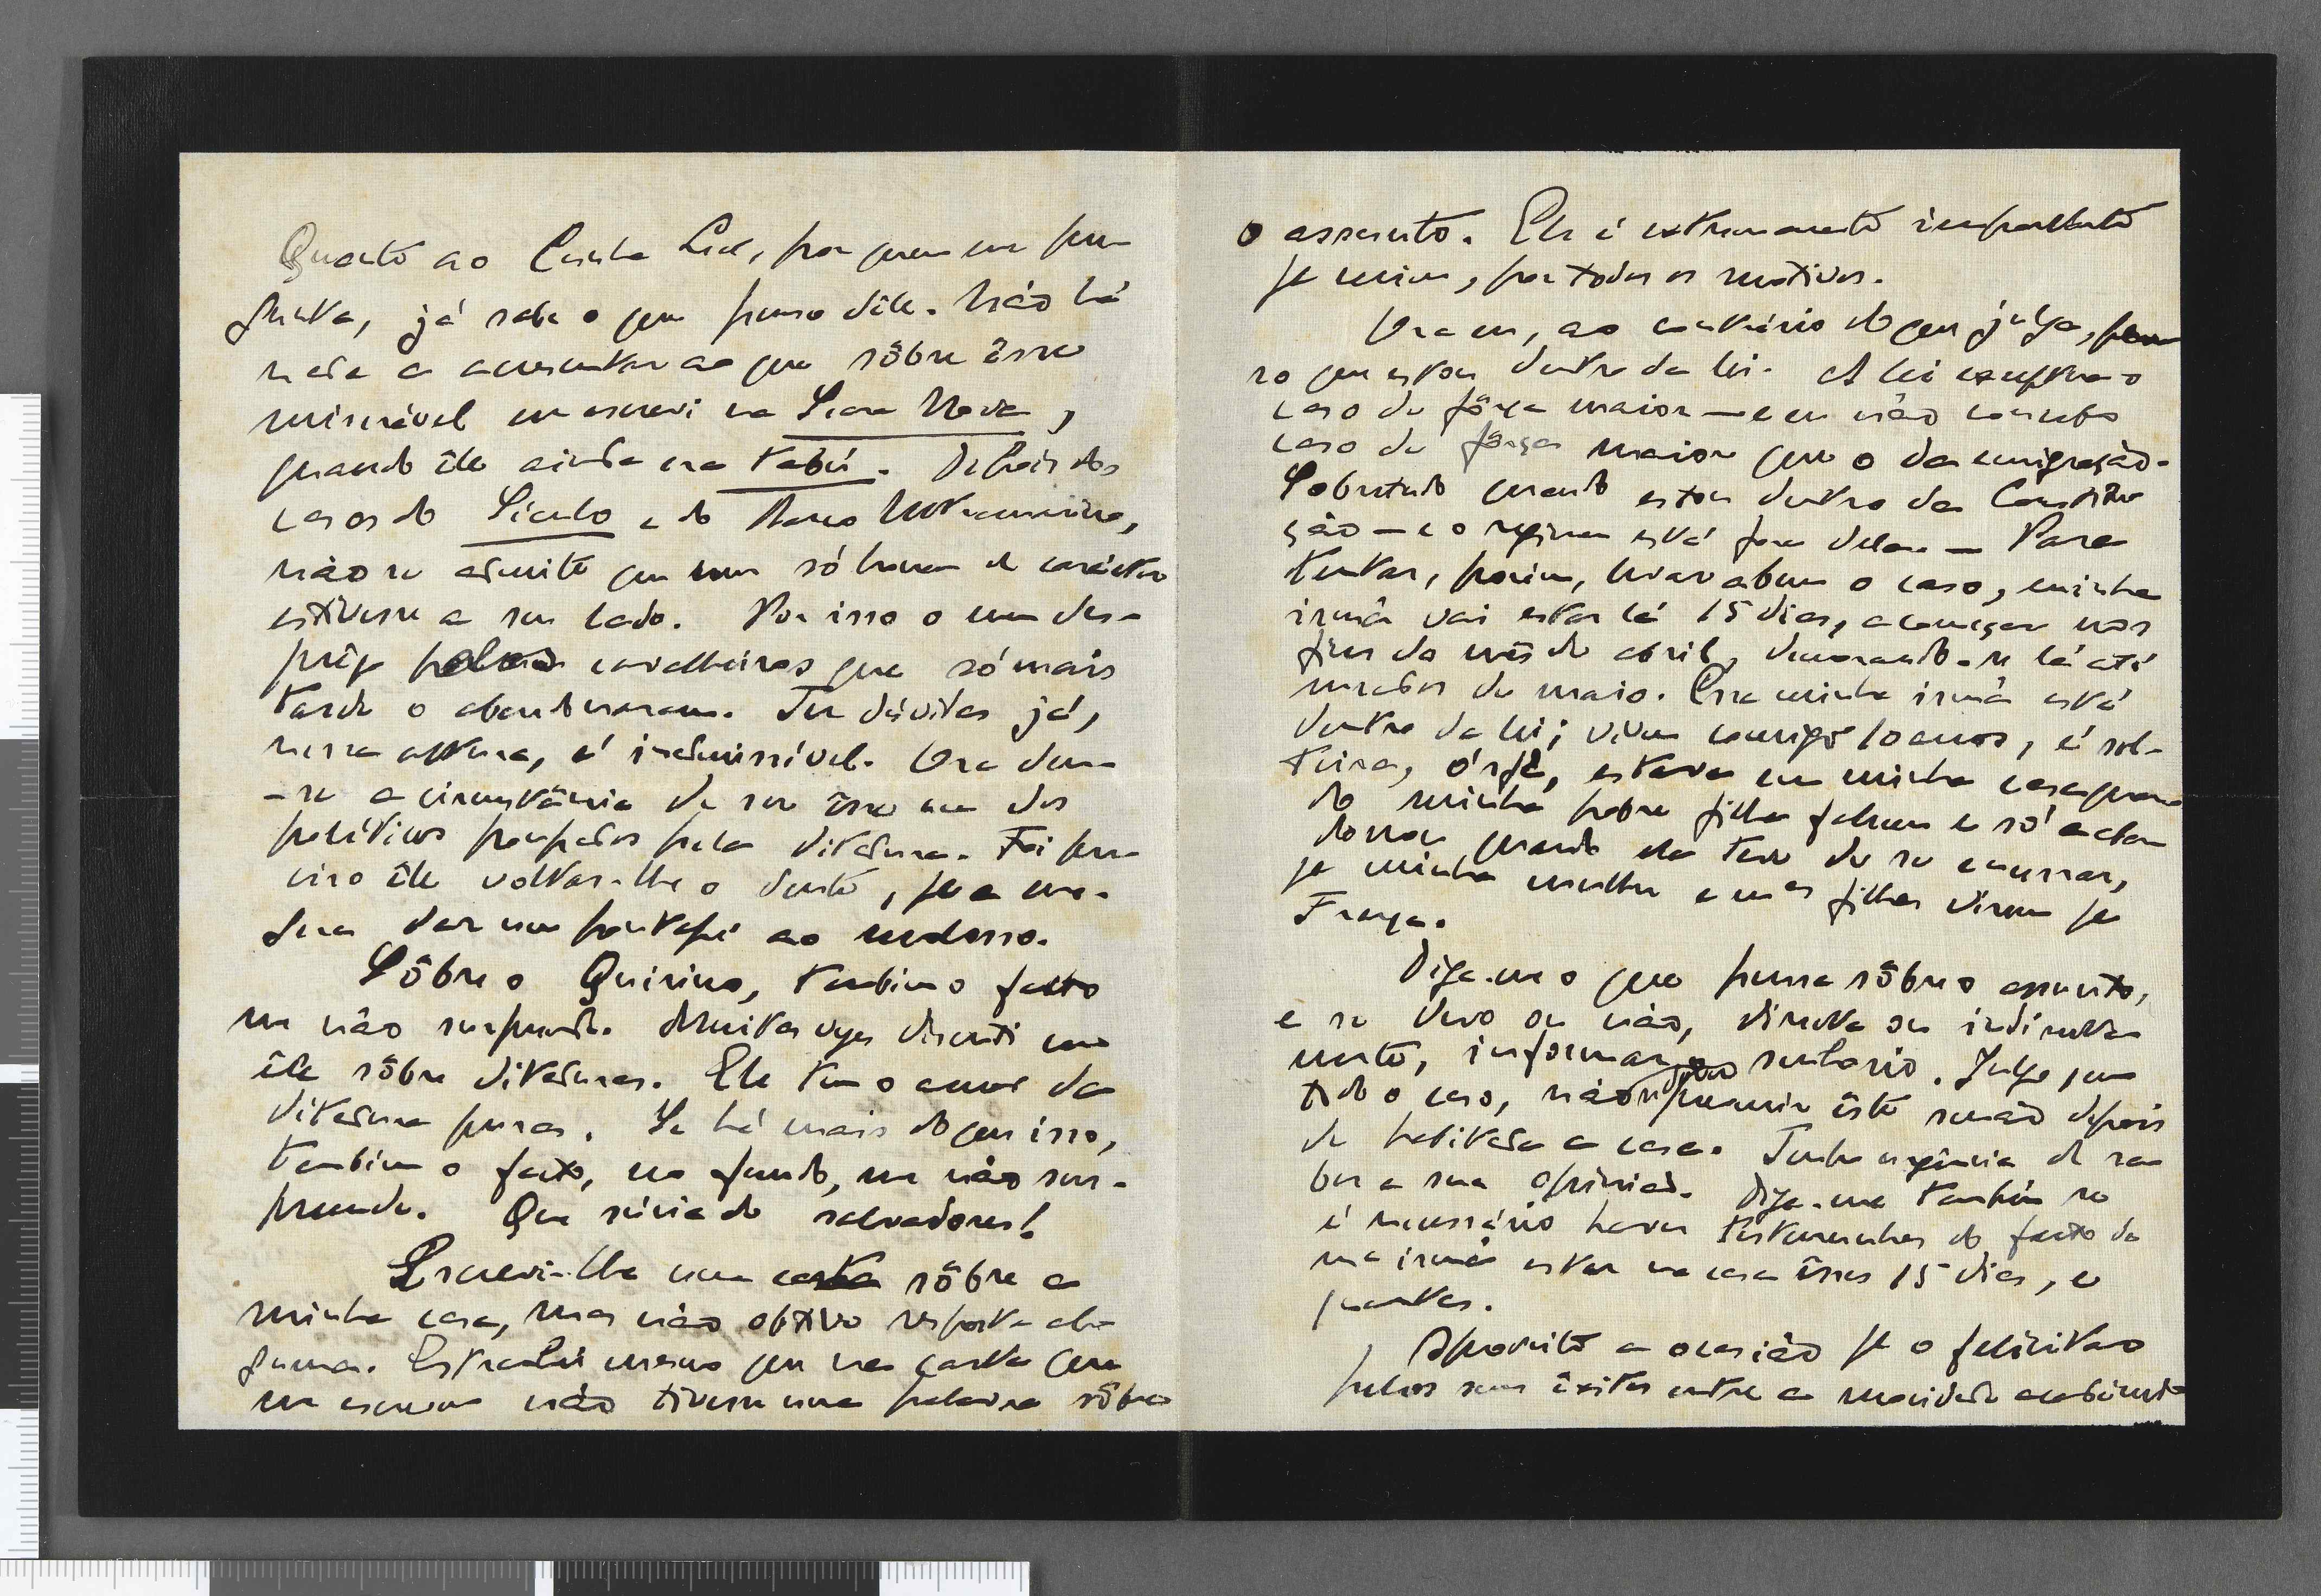 Quanto ao Cunha Leal, por quem me per-
gunta, já sabe o que penso dêle. Não há
nada a acrescentar ao que sôbre êsse
miserável eu escrevi na Seara Nova,
quando êle ainda era tabú. Depois dos
casos do Século e do Banco Ultramarino,
não se admite que um só homem de carácter
estivesse a seu lado. Por isso o meu des-
prêzo pelos cavalheiros que só mais
tarde o abandonaram. Ter dúvidas já,
nessa altura, é inadmissível. Ora deu-
-se a circunstância de ser êsse um dos
políticos poupados pela ditadura. Foi pre-
ciso êle voltar-lhe o dente, pª a
dar um pontapé ao
Sôbre o Quirino, também o facto
me não surpreende. Muitas vezes discuti com
êle sôbre ditaduras. Ele tem o amor da
ditadura pura. Se há mais do que isso,
também o facto, no fundo, me não sur-
preende. Que súcia de salvadores!
Escrevi-lhe uma carta sôbre a
minha casa, mas não obtive resposta al-
guma. Estranhei mesmo que na carta que
me escreveu não tivesse uma palavra sôbre
o assunto. Ele é extremamente importante
pª mim, por todos os motivos.
Ora eu, ao contrário do que julga, pen-
so que estou dentro da lei. A lei exceptua o
caso de fôrça maior — e eu não conheço
caso de fôrça maior que o da emigração.
Sobretudo quando estou dentro da Constitui-
ção — e o regimen está fora dela. — Para
tentar, porém, levar a bem o caso, minha
irmã vai estar lá 15 dias, a começar nos
fins do mês de abril, demorando-se lá até
meados de maio. Essa minha irmã está
dentro da lei; viveu comigo 10 anos, é sol-
teira, órfã, estava em minha casa quan-
do minha pobre filha faleceu e só a aban-
donou quando ela teve de se encerrar,
pª minha mulher e mªs filhas virem pª
França.
Diga-me o que pensa sôbre o assunto,
e se devo ou não, directa ou indirecta-
mente, informar o senhorio. Julgo que
todo o caso, não prevenir êste senão depois
de habitada a casa. Tenho urgência de sa-
ber a sua opinião. Diga-me também se
é necessário haver testemunhas do facto da
mª irmã estar na casa êsses 15 dias, e
quantas.
Aproveito a ocasião pª o felicitar
pelos seus êxitos entre a mocidade académica